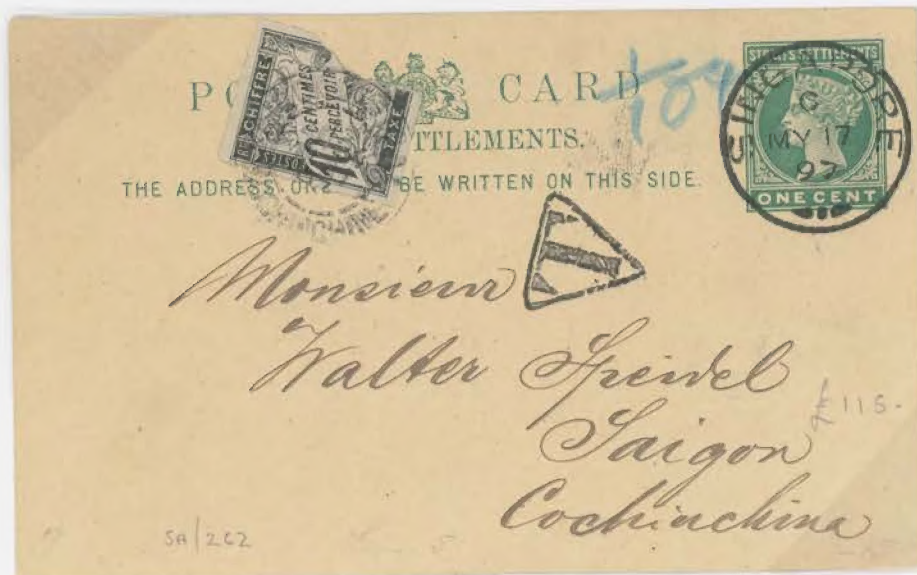 POST CARD
STRAITS SETTLEMENTS.
THE ADDRESS ONLY TO BE WRITTEN ON THIS SIDE.
CHIFFRE
TAXE
POSTES
10
CENTIMES
PERCEVOIR
STRAITS SETTLEMENTS
ONE CENT
SINGAPORE
G
MY 17
97
T
Monsieur
Walter Speidel
Saigon
Cochinchina
115.
SA/2C2